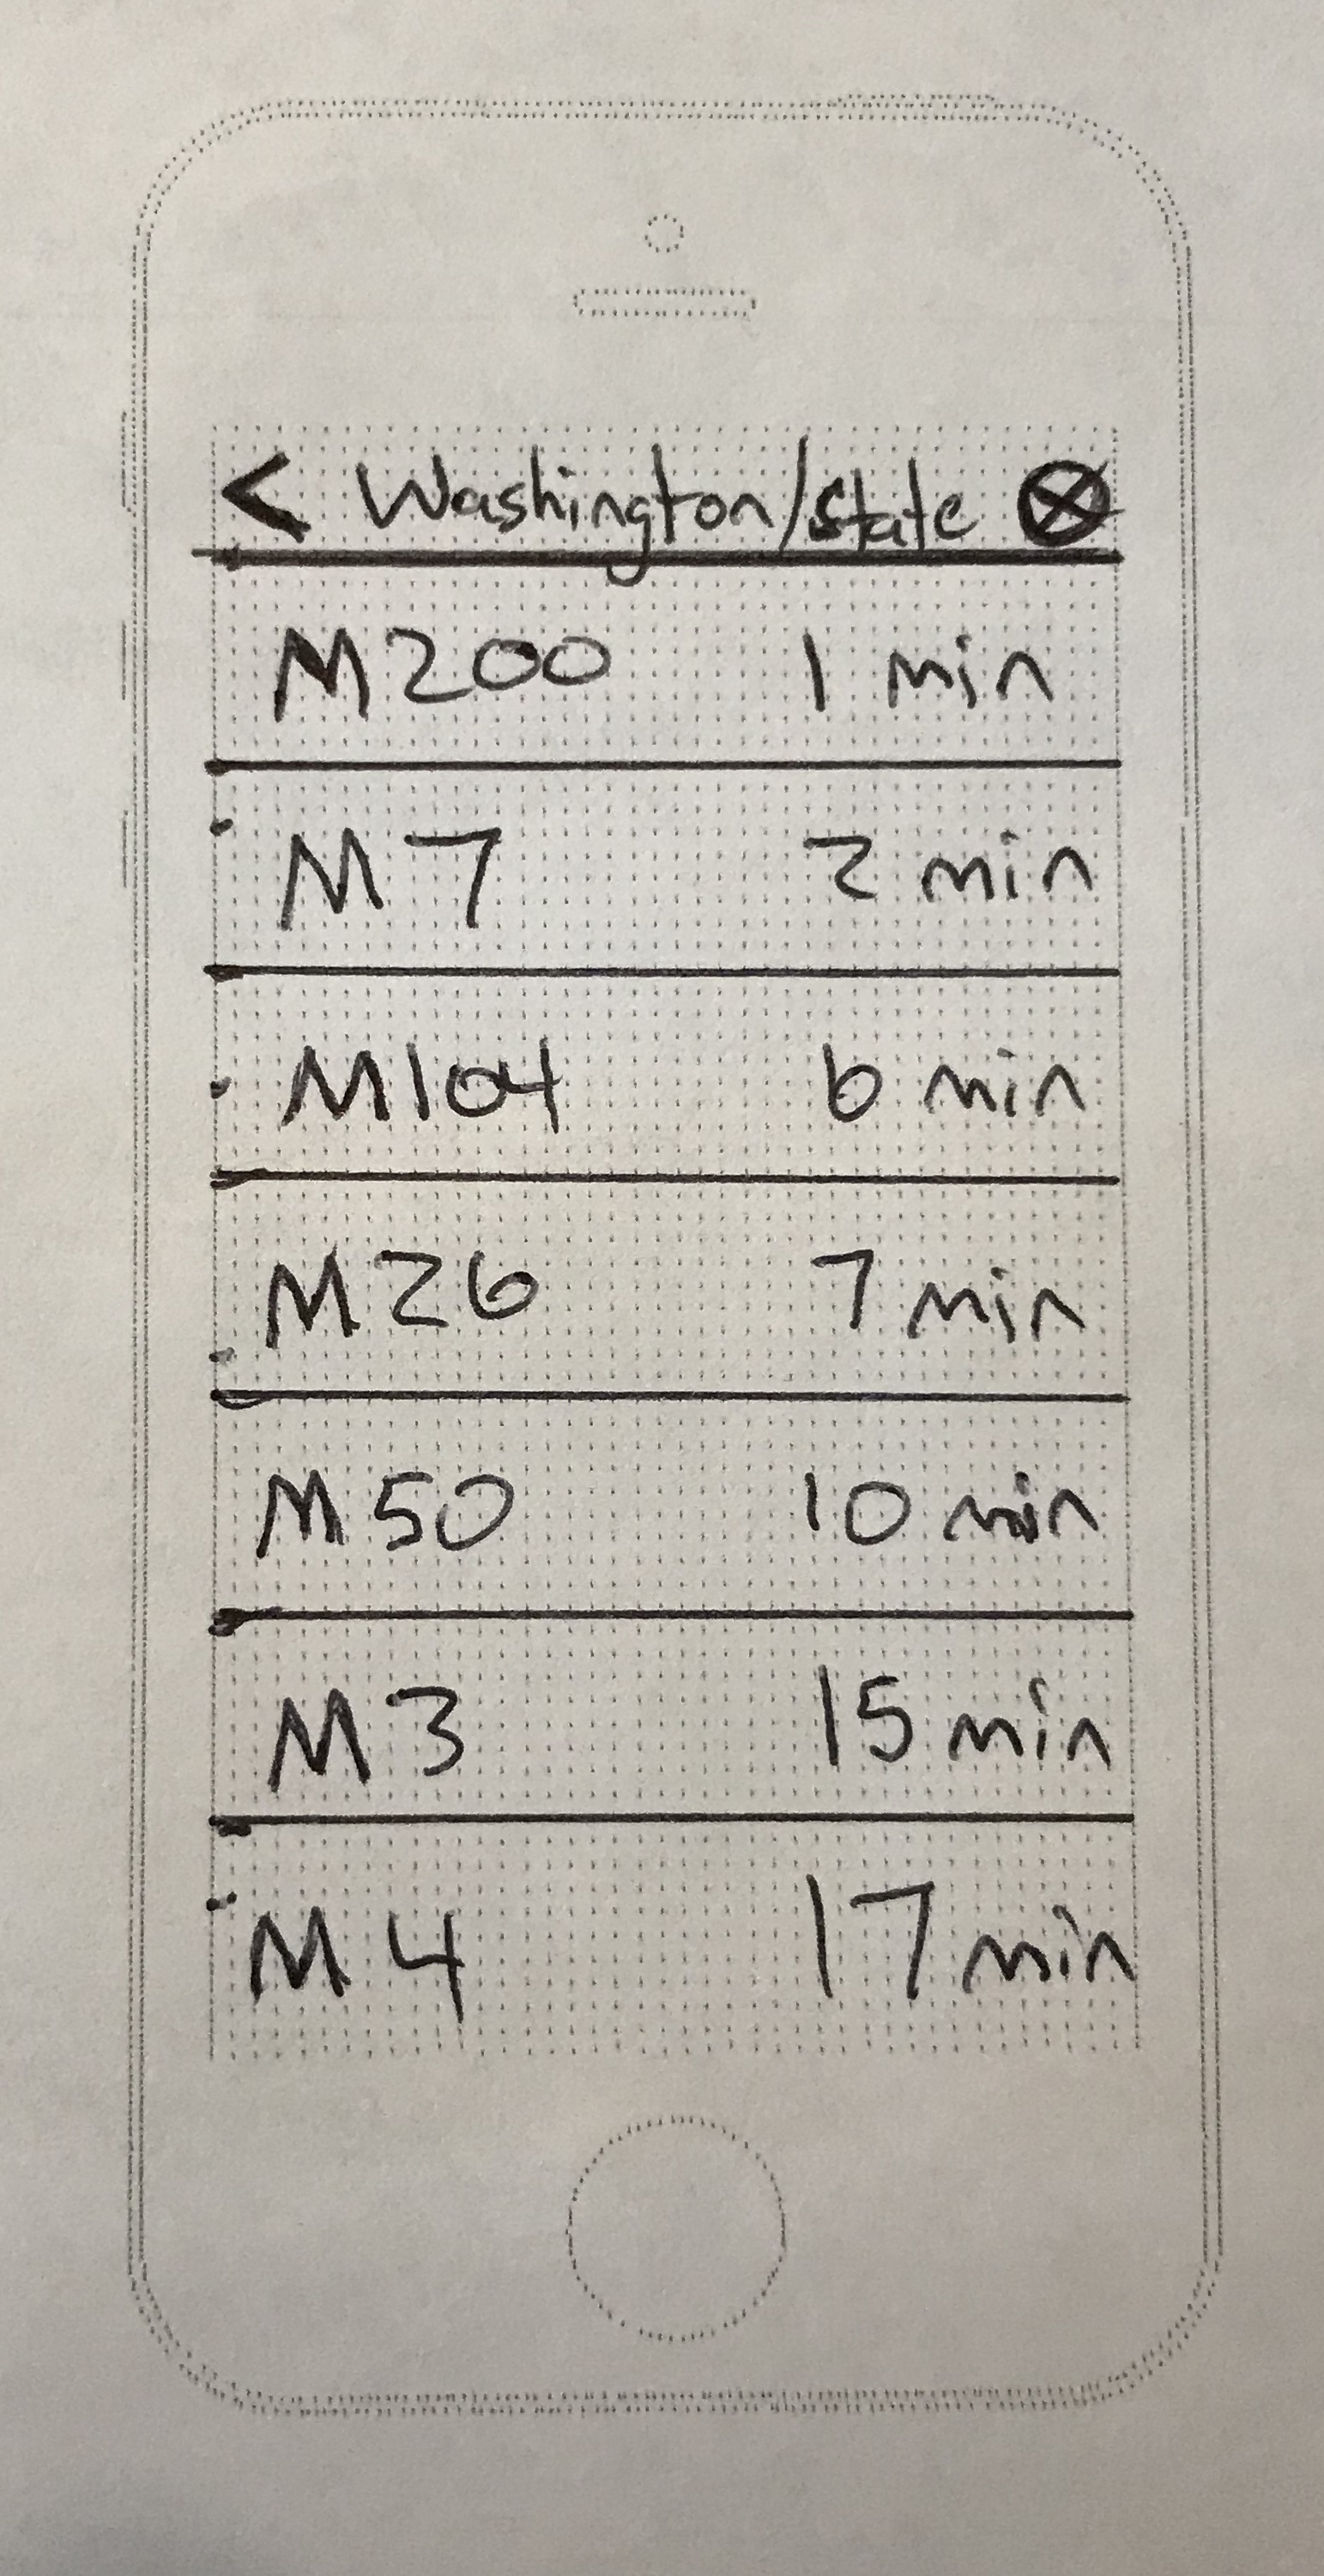 < Washington/State ⊗
M200 1 min
M7 2 min
M104 6 min
M26 7 min
M50 10 min
M3 15 min
M4 17 min